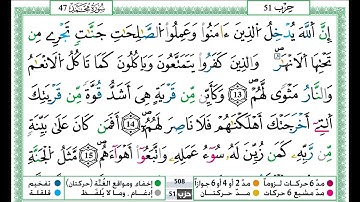 47 سُورَةُ مُحَمَّد حِزْب 51
إِنَّ ٱللَّهَ يُدْخِلُ ٱلَّذِينَ ءَامَنُوا۟ وَعَمِلُوا۟ ٱلصَّٰلِحَٰتِ جَنَّٰتٍ تَجْرِى مِن
تَحْتِهَا ٱلْأَنْهَٰرُ وَٱلَّذِينَ كَفَرُوا۟ يَتَمَتَّعُونَ وَيَأْكُلُونَ كَمَا تَأْكُلُ ٱلْأَنْعَٰمُ
وَٱلنَّارُ مَثْوًى لَّهُمْ 13 وَكَأَيِّن مِّن قَرْيَةٍ هِىَ أَشَدُّ قُوَّةً مِّن قَرْيَتِكَ
ٱلَّتِىٓ أَخْرَجَتْكَ أَهْلَكْنَٰهُمْ فَلَا نَاصِرَ لَهُمْ 14 أَفَمَن كَانَ عَلَىٰ بَيِّنَةٍ
مِّن رَّبِّهِۦ كَمَن زُيِّنَ لَهُۥ سُوٓءُ عَمَلِهِۦ وَٱتَّبَعُوٓا۟ أَهْوَآءَهُم 15 مَّثَلُ ٱلْجَنَّةِ
مدّ 6 حركات لزوماً مدّ 2 أو 4 أو 6 جوازاً 508 إخفاء ومواقع الغنّة (حركتان) تفخيم
مدّ مشبع 6 حركات مدّ حركتان حزب 51 إدغام . وما لا يُلفظ قلقلة